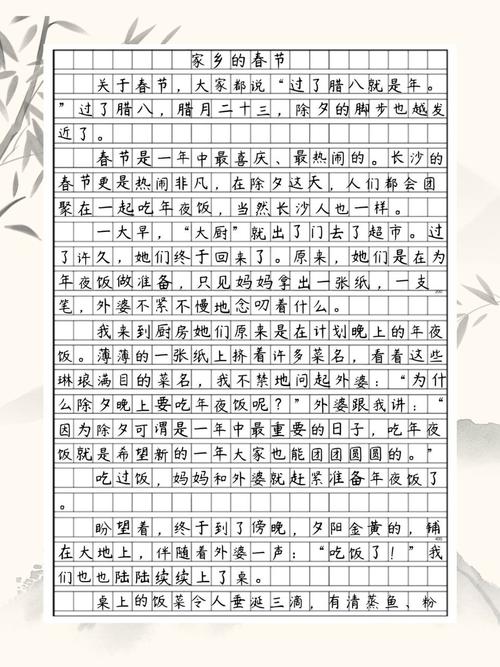 家乡的春节
关于春节，大家都说“过了腊八就是年。
”过了腊八，腊月二十三，除夕的脚步也越发
近了。
春节是一年中最喜庆、最热闹的。长沙的
春节更是热闹非凡，在除夕这天，人们都会团
聚在一起吃年夜饭，当然长沙人也一样。
一大早，“大厨”就出了门去了超市。过
了许久，她们终于回来了。原来，她们是在为
年夜饭做准备，只见妈妈拿出一张纸，一支
笔，外婆不紧不慢地念叨着什么。
我来到厨房她们原来是在计划晚上的年夜
饭。薄薄的一张纸上挤着许多菜名，看着这些
琳琅满目的菜名，我不禁地问起外婆：“为什
么除夕晚上要吃年夜饭呢？”外婆跟我讲：“
因为除夕可谓是一年中最重要的日子，吃年夜
饭就是希望新的一年大家也能团团圆圆的。”
吃过饭，妈妈和外婆就赶紧准备年夜饭了
。
盼望着，终于到了傍晚，夕阳金黄的，铺
在大地上，伴随着外婆一声：“吃饭了！”我
们也也陆陆续续上了桌。
桌上的饭菜令人垂涎三滴，有清蒸鱼、粉